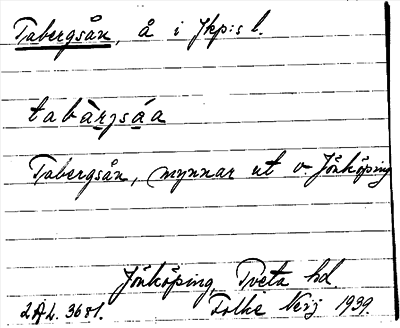 Tabergsån, å i Jkp:s l.
tabàrjsáa
Tabergsån, mynnar ut v. Jönköping
Jönköping, Tveta hd.
2AL. 3681. Folke Neij 1939.